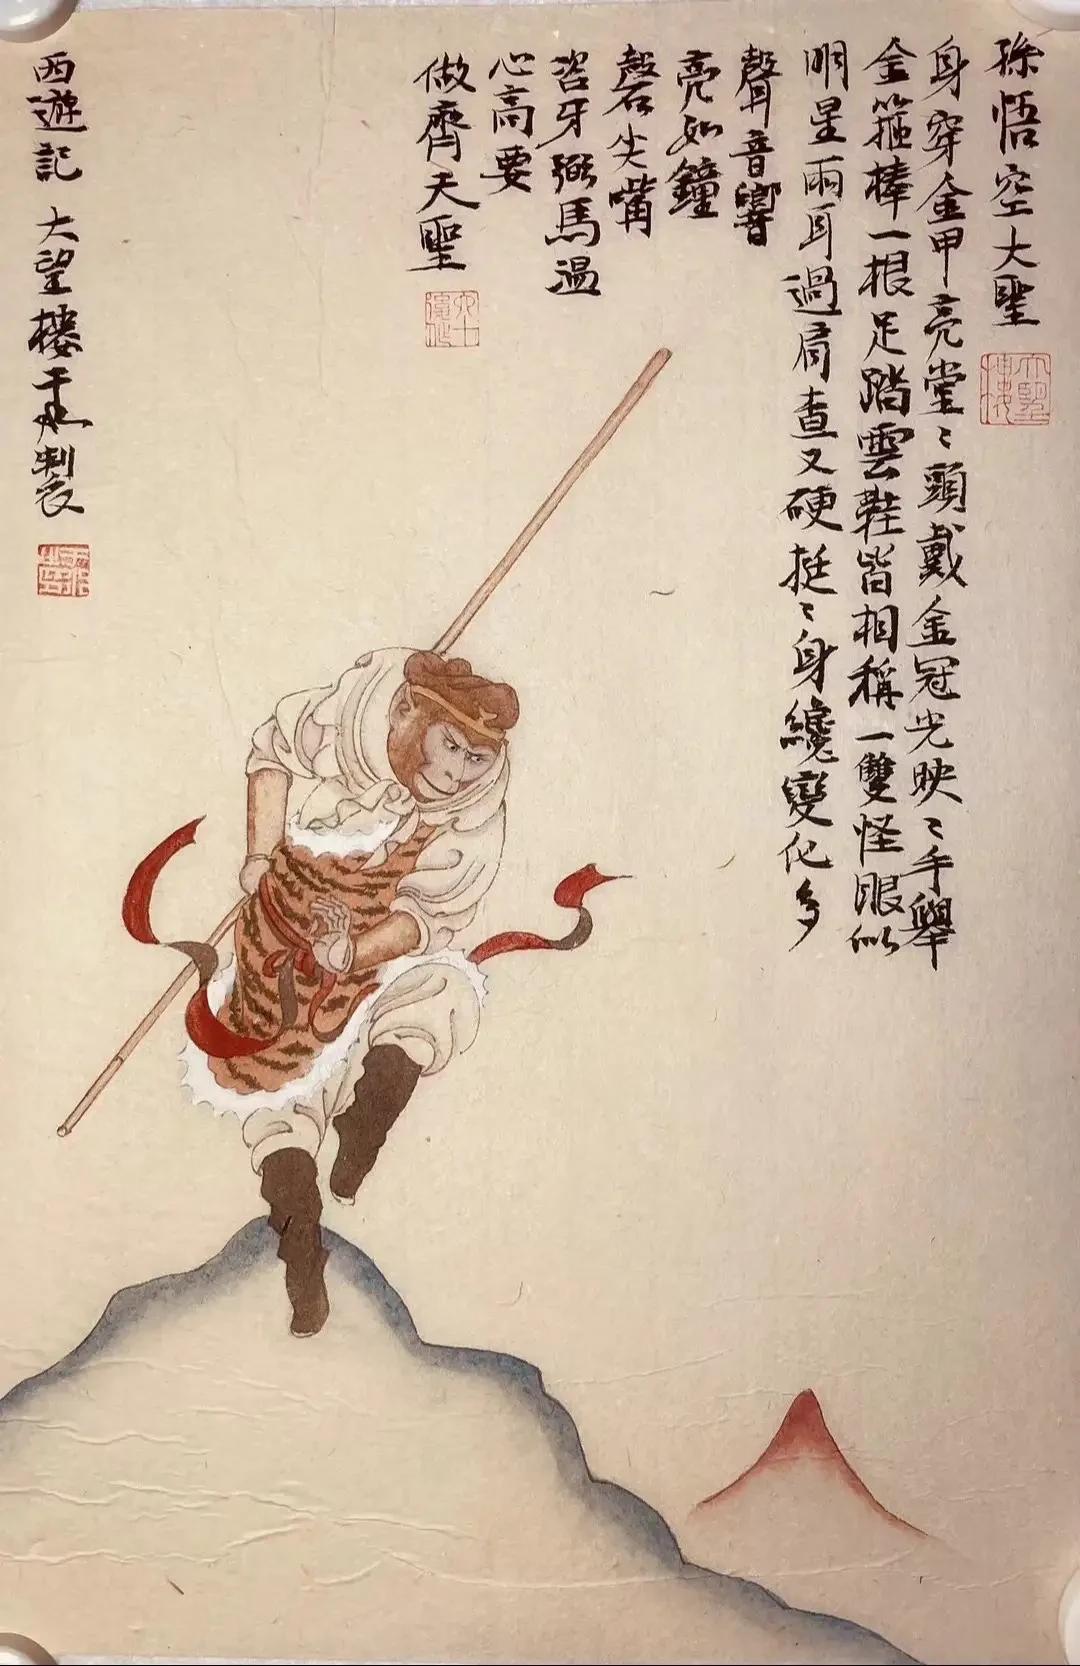 孫悟空大聖
身穿金甲亮堂〻頭戴金冠光映〻手舉
金箍棒一根足踏雲鞋皆相稱一雙怪眼似
明星兩耳過肩查又硬挺〻身纔變化多
聲音響
亮如鐘
磬尖嘴
咨牙弼馬温
心高要
做齊天聖
西遊記 大望楼製